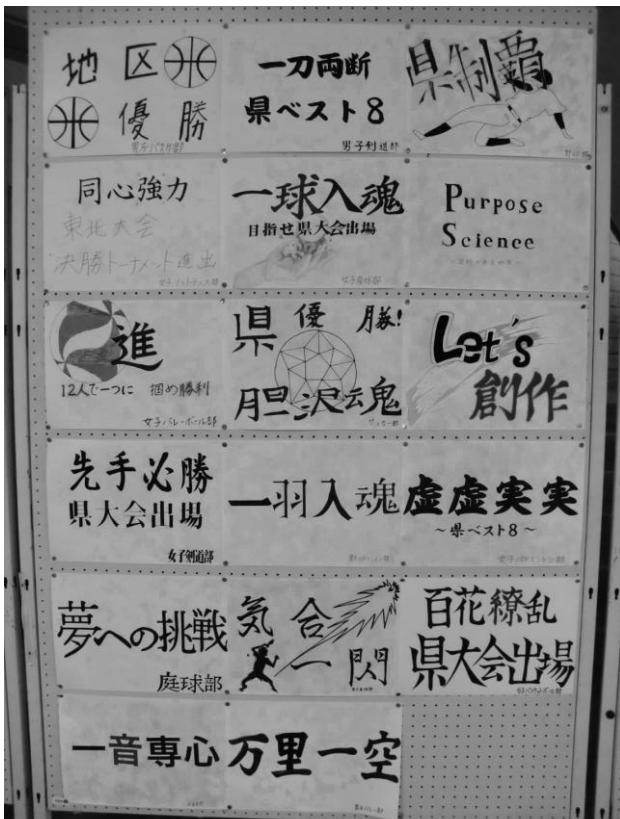 地区
優勝
男子バスケ部
一刀両断
県ベスト8
男子剣道部
県制覇
同心強力
東北大会
決勝トーナメント進出
女子ソフトテニス部
一球入魂
目指せ県大会出場
女子卓球部
Purpose
Science
進
12人で一つに 掴め勝利
女子バレーボール部
県優勝!
胆沢魂
サッカー部
Let's
創作
先手必勝
県大会出場
女子剣道部
一羽入魂
虚虚実実
～県ベスト8～
女子バドミントン部
夢への挑戦
庭球部
気合
一閃
百花繚乱
県大会出場
一音専心
万里一空